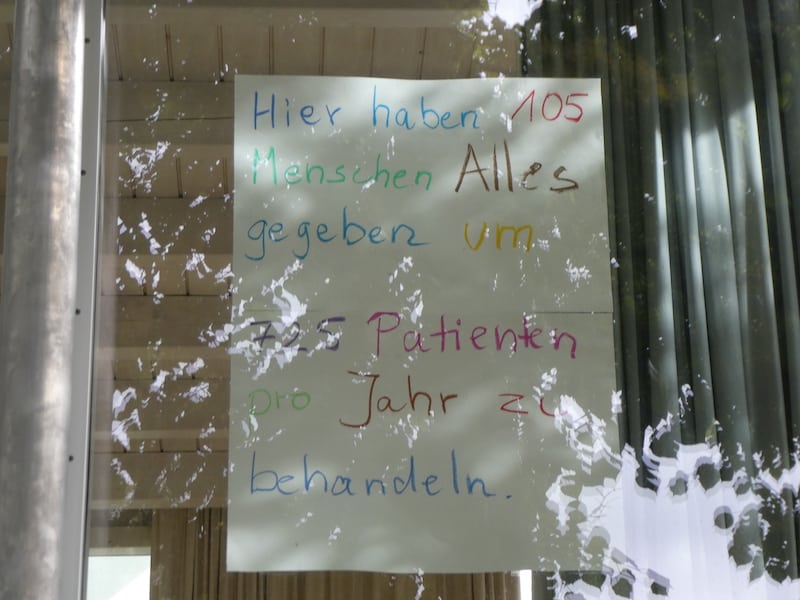 Hier haben 105
Menschen Alles
gegeben um
725 Patienten
pro Jahr zu
behandeln.